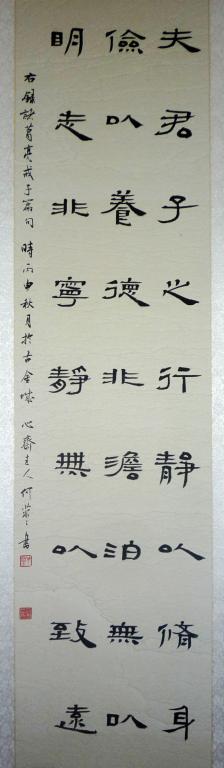 夫君子之行靜以脩身
儉以養德非澹泊無以
明志非寧靜無以致遠
右録諸葛亮戒子篇句 時丙申秋月於古金城 心齋主人 書